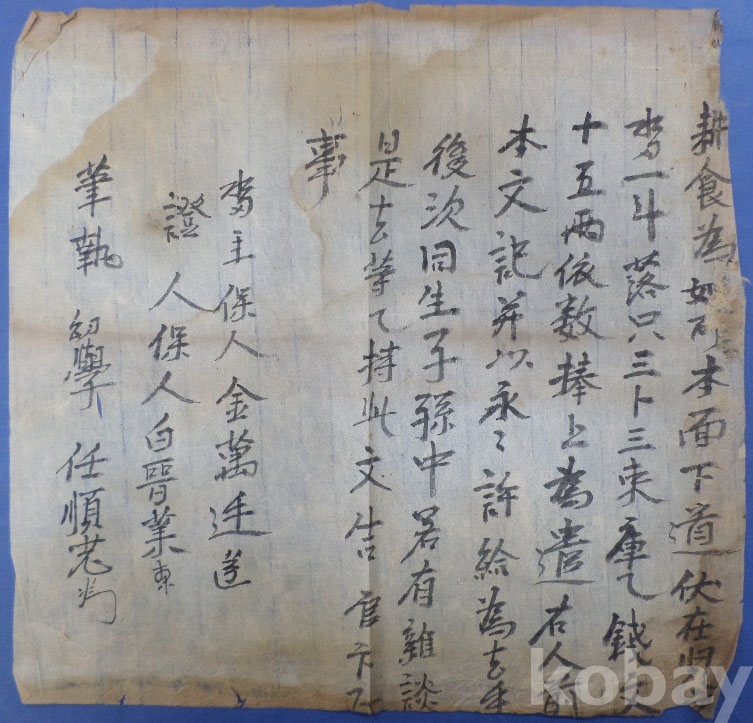 耕食為如可本面下道伏在
畓一斗落只三卜三束庫乙錢文
十五兩依數捧上為遣右人前
本文記并以永〻許給為去乎
後次同生子孫中若有雜談
是去等乙持此文告官卞
事
畓主保人金萬
證人保人白晉業
筆執幼學任順
kobay